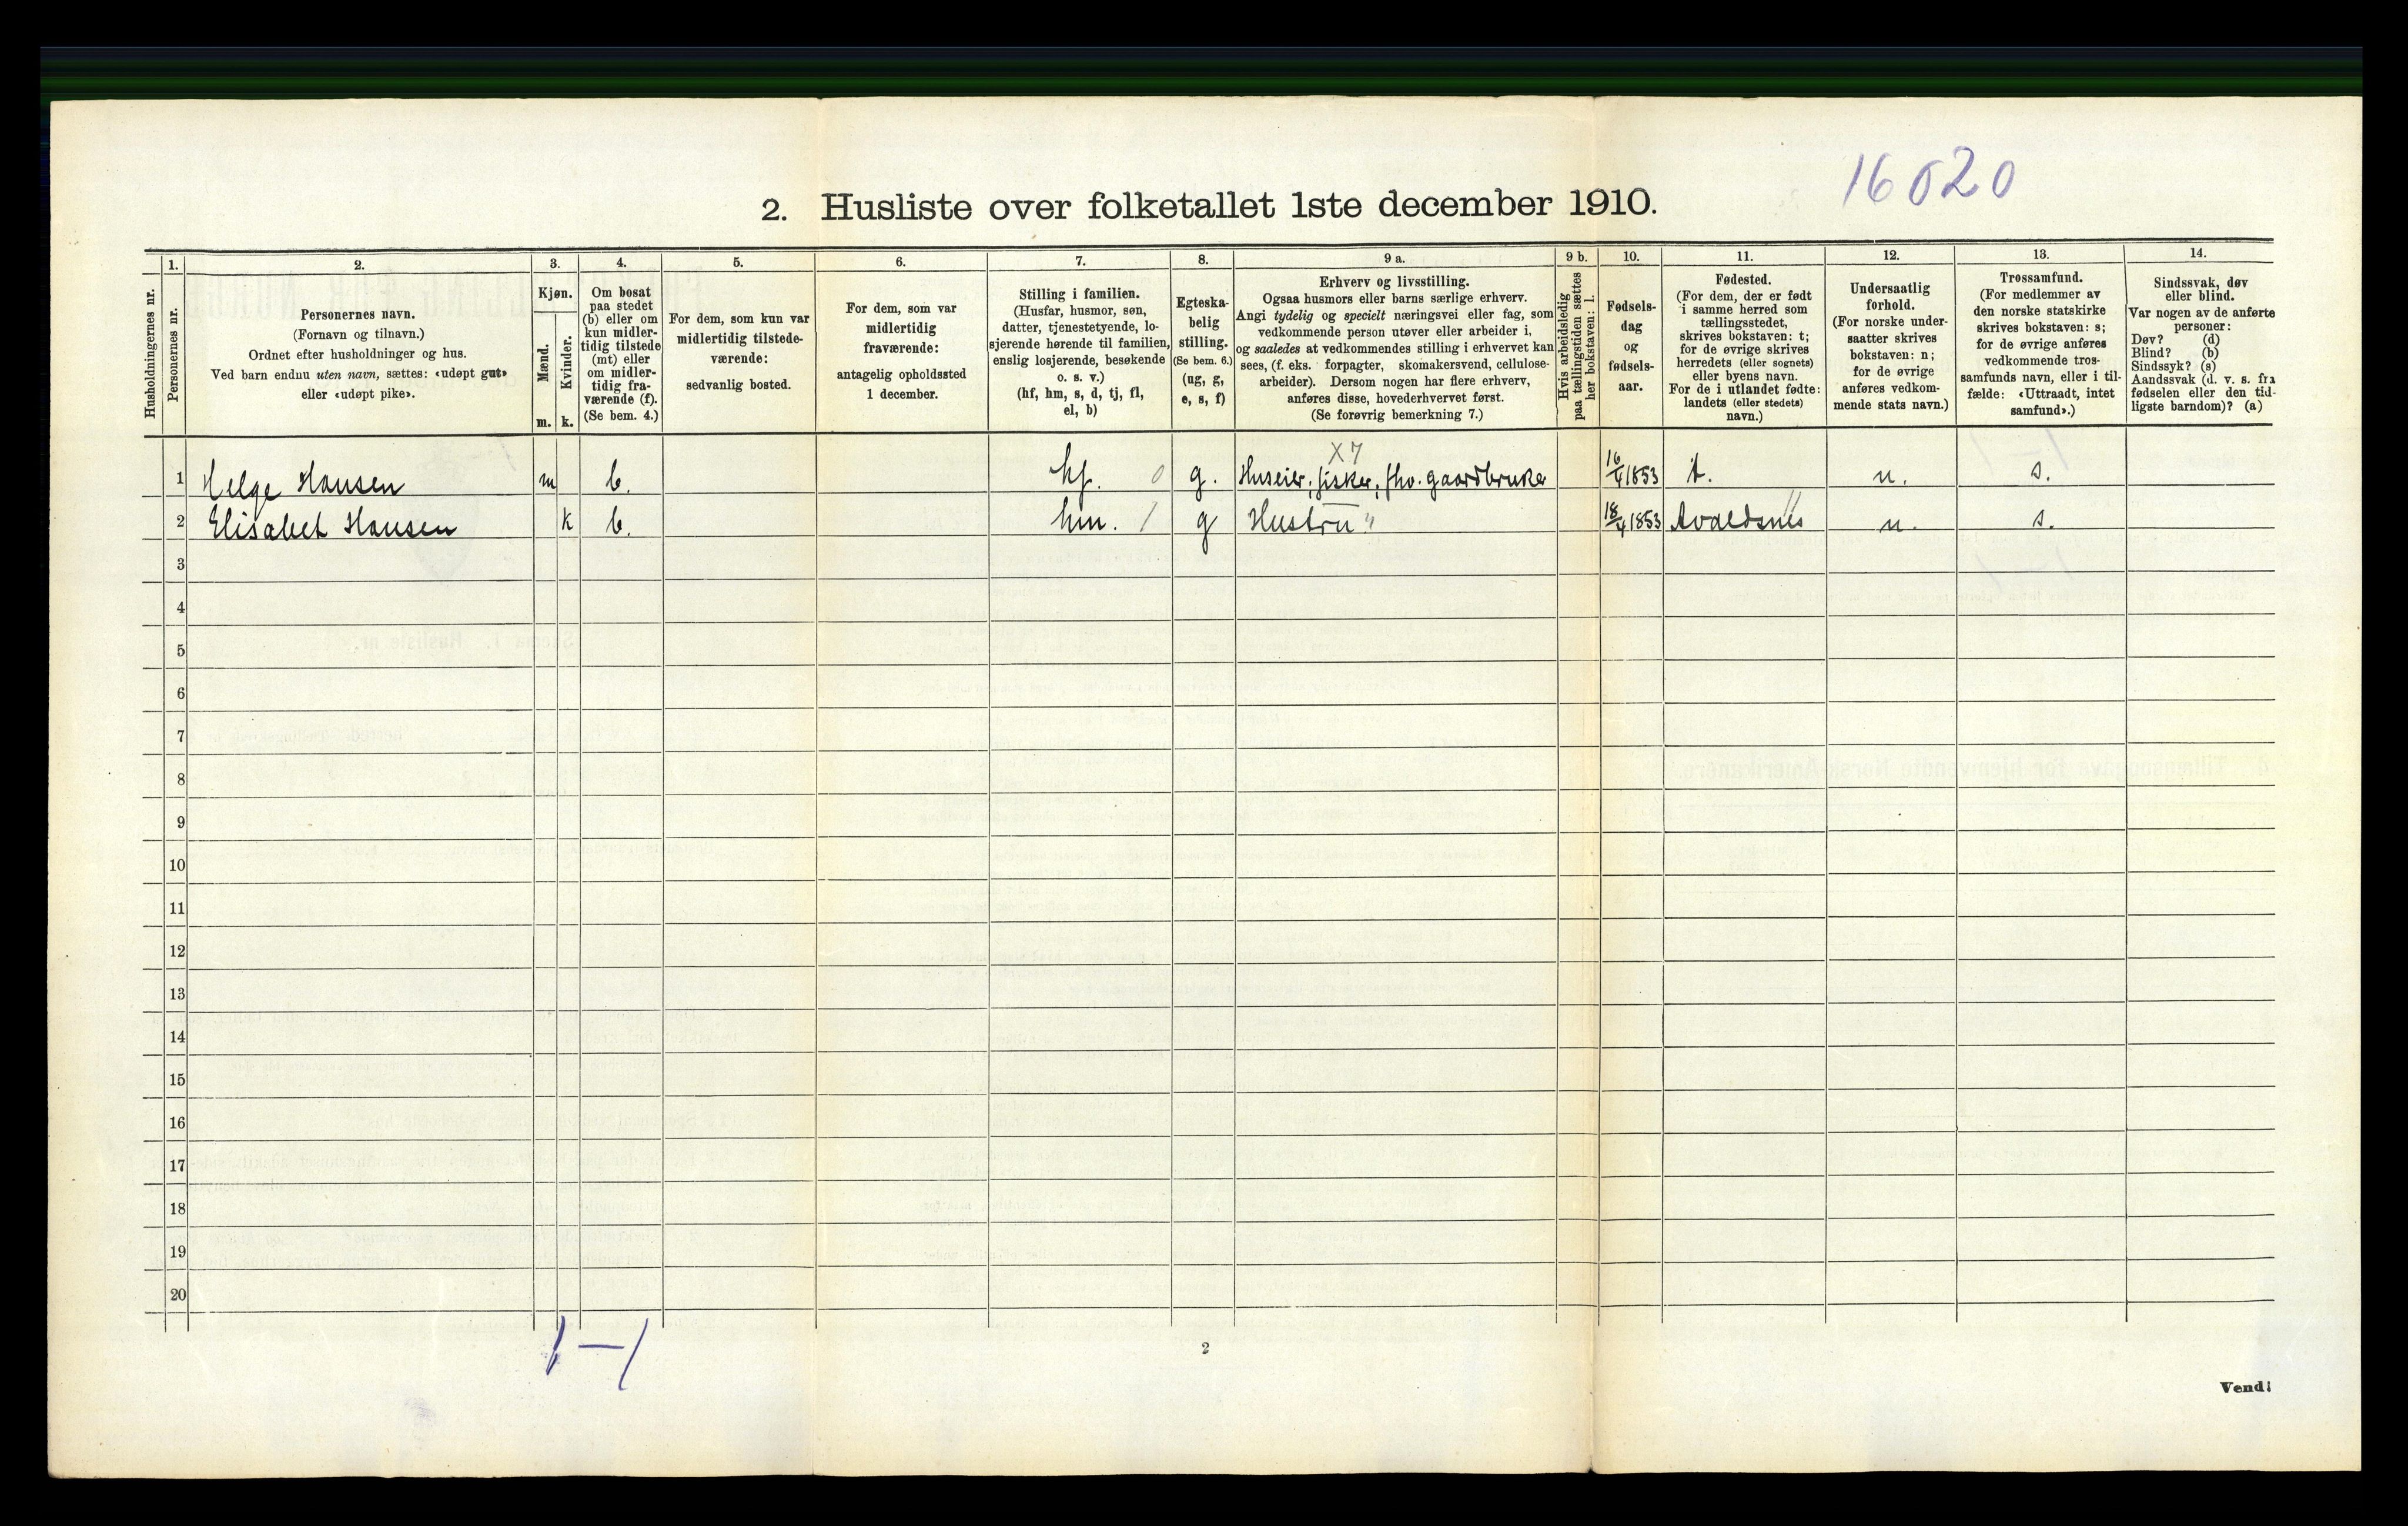 16020
2. Husliste over folketallet 1ste december 1910.
Husholdningernes nr.
1.
Personernes nr.
2.
Personernes navn.
(Fornavn og tilnavn.)
Ordnet efter husholdninger og hus.
Ved barn endnu uten navn, sættes: «udøpt gut»
eller «udøpt pike».
3.
Kjøn.
Mænd.
Kvinder.
m. k.
4.
Om bosat
paa stedet
(b) eller om
kun midler-
tidig tilstede
(mt) eller
om midler-
tidig fra-
værende (f).
(Se bem. 4.)
5.
For dem, som kun var
midlertidig tilstede-
værende:
sedvanlig bosted.
6.
For dem, som var
midlertidig
fraværende:
antagelig opholdssted
1 december.
7.
Stilling i familien.
(Husfar, husmor, søn,
datter, tjenestetyende, lo-
sjerende hørende til familien,
enslig losjerende, besøkende
o. s. v.)
(hf, hm, s, d, tj, fl,
el, b)
8.
Egteska-
belig
stilling.
(Se bem. 6.)
(ug, g,
e, s, f)
9 a.
Erhverv og livsstilling.
Ogsaa husmors eller barns særlige erhverv.
Angi tydelig og specielt næringsvei eller fag, som
vedkommende person utøver eller arbeider i,
og saaledes at vedkommendes stilling i erhvervet kan
sees, (f. eks. forpagter, skomakersvend, cellulose-
arbeider). Dersom nogen har flere erhverv,
anføres disse, hovederhvervet først.
(Se forøvrig bemerkning 7.)
9 b.
Hvis arbeidsledig
paa tællingstiden sættes
her bokstaven: l.
10.
Fødsels-
dag
og
fødsels-
aar.
11.
Fødested.
(For dem, der er født
i samme herred som
tællingsstedet,
skrives bokstaven: t;
for de øvrige skrives
herredets (eller sognets)
eller byens navn.
For de i utlandet fødte:
landets (eller stedets)
navn.)
12.
Undersaatlig
forhold.
(For norske under-
saatter skrives
bokstaven: n;
for de øvrige
anføres vedkom-
mende stats navn.)
13.
Trossamfund.
(For medlemmer av
den norske statskirke
skrives bokstaven: s;
for de øvrige anføres
vedkommende tros-
samfunds navn, eller i til-
fælde: «Uttraadt, intet
samfund».)
14.
Sindssvak, døv
eller blind.
Var nogen av de anførte
personer:
Døv? (d)
Blind? (b)
Sindssyk? (s)
Aandssvak (d. v. s. fra
fødselen eller den tid-
ligste barndom)? (a)
X7
1 Helge Hansen m b. hf. 0 g. Huseier, fisker, fhv. gaardbruker 16/4 1853 t. n. s.
2 Elisabet Hansen k b. hm. 1 g Hustru " 18/4 1853 Avaldsnes n. s.
3
4
5
6
7
8
9
10
11
12
13
14
15
16
17
18
19
20
1–1
2
Vend!